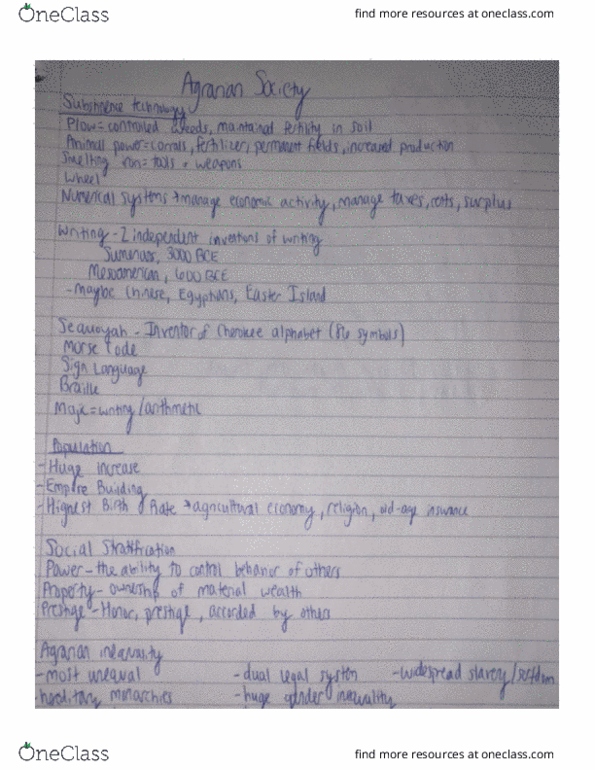 OneClass
find more resources at oneclass.com
Agrarian Society
Subsistence technology
Plow = controlled weeds, maintained fertility in soil
Animal power = corrals, fertilizer, permanent fields, increased production
Smelting iron = tools + weapons
Wheel
Numerical systems → manage economic activity, manage taxes, costs, surplus
Writing - 2 independent inventions of writing
Sumerians, 3000 BCE
Mesoamerican, 600 BCE
- Maybe Chinese, Egyptians, Easter Island
Sequoyah - Inventor of Cherokee alphabet (86 symbols)
Morse Code
Sign Language
Braille
Magic = writing/arithmetic
Population
- Huge increase
- Empire Building
- Highest Birth Rate → agricultural economy, religion, old-age insurance
Social Stratification
Power - the ability to control behavior of others
Property - ownership of material wealth
Prestige - Honor, prestige, accorded by others
Agrarian inequality
- most unequal - dual legal system - widespread slavery/serfdom
- hereditary monarchies - huge gender inequality
OneClass
find more resources at oneclass.com